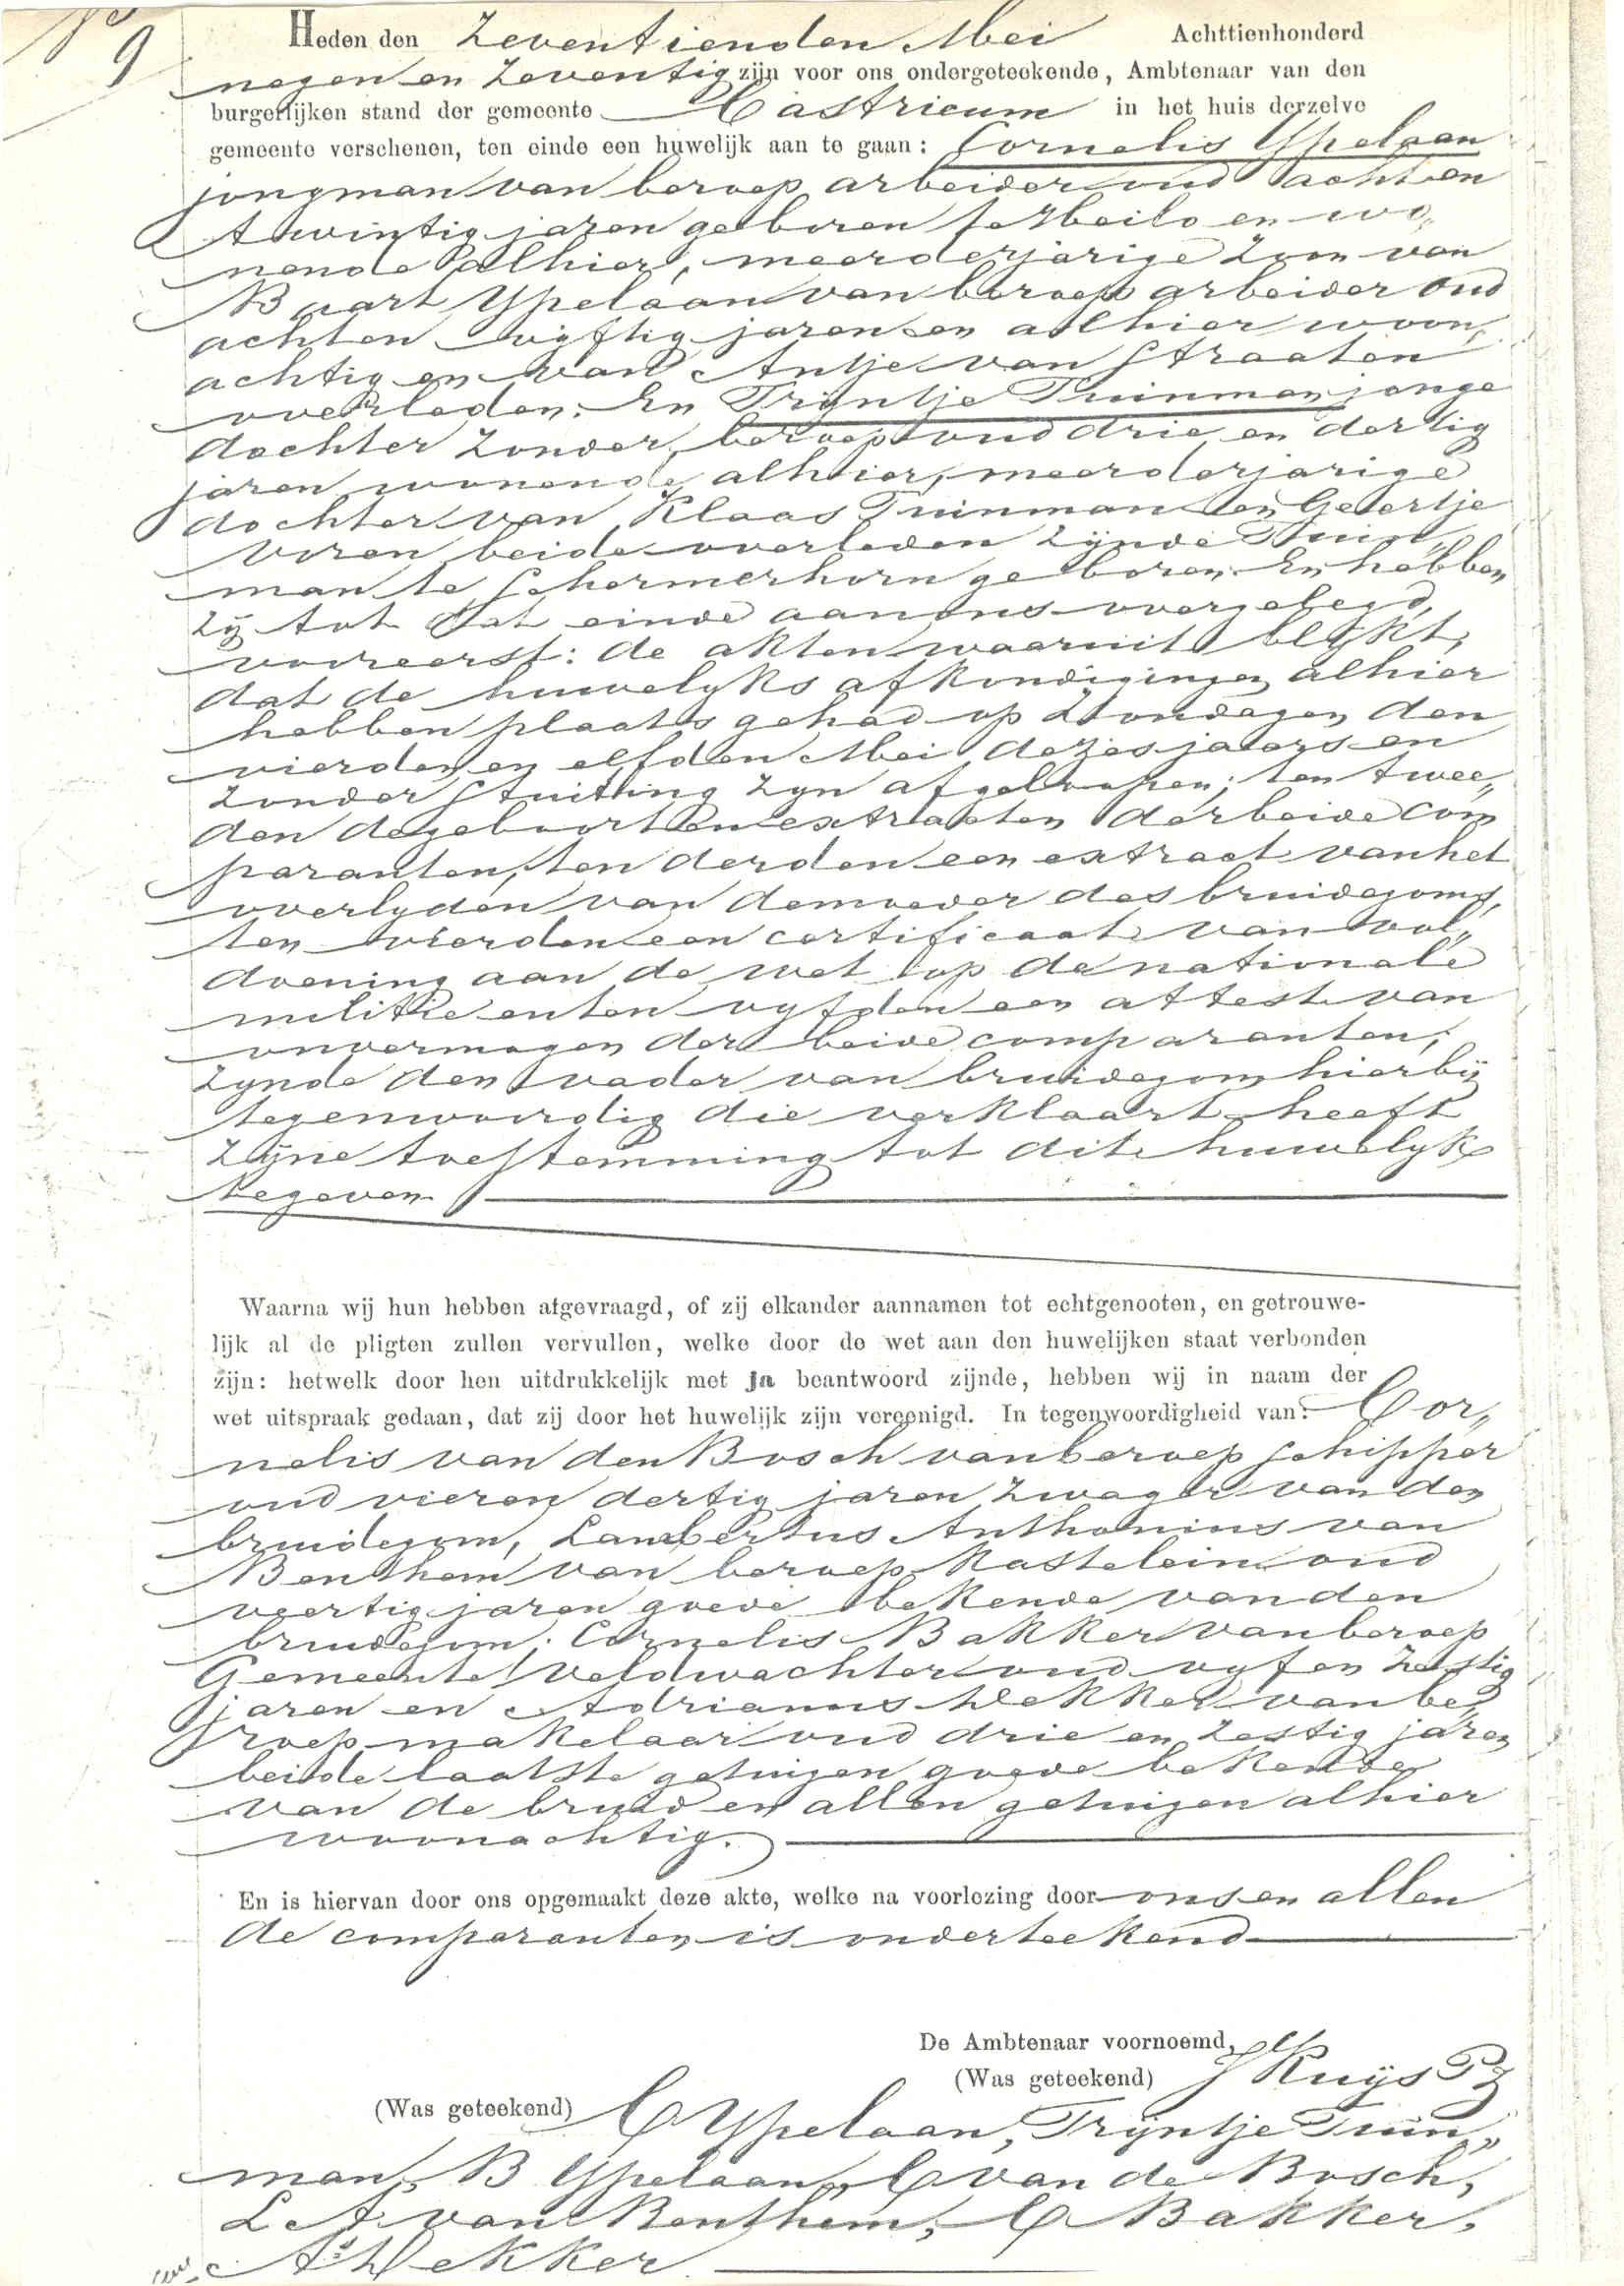 No
9
Heden den Zeventienden Mei Achttienhonderd
negen en Zeventig zijn voor ons ondergeteekende, Ambtenaar van den
burgerlijken stand der gemeente Castricum in het huis derzelve
gemeente verschenen, ten einde een huwelijk aan te gaan: Cornelis Ypelaan
jongman van beroep arbeider oud acht en
twintig jaren geboren te Heilo en wo„
nende alhier, meerderjarige Zoon van
Buart Ypelaan van beroep arbeider oud
acht en vijftig jaren en alhier woon„
achtig en van Antje van Straaten
overleden. En Trijntje Tuinman jonge
dochter Zonder beroep oud drie en dertig
jaren wonende alhier, meerderjarige
dochter van Klaas Tuinman en Geertje
Voren beide overleden Zijnde Tuin„
man te Schermerhorn geboren. En hebben
Zij tot dat einde aan ons overgelegd,
vooreerst: de akten waaruit blykt,
dat de huwelyks afkondigingen alhier
hebben plaats gehad op Zondagen den
vierden en elfden Mei dezes jaars en
Zonder Stuiting Zyn afgeloopen; ten twee„
den de geboorten extracten der beide com
paranten, ten derden een extract van het
overlyden van de moeder des bruidegoms,
ten vierden een certificaat van vol„
doening aan de wet op de nationale
militie en ten vyfden een attest van
onvermogen der beide comparanten,
Zynde den vader van bruidegom hierbij
tegenwoordig die verklaart heeft
Zijne toestemming tot dit huwelyk
te geven
Waarna wij hun hebben afgevraagd, of zij elkander aannamen tot echtgenooten, en getrouwe-
lijk al de pligten zullen vervullen, welke door de wet aan den huwelijken staat verbonden
zijn: hetwelk door hen uitdrukkelijk met ja beantwoord zijnde, hebben wij in naam der
wet uitspraak gedaan, dat zij door het huwelijk zijn vereenigd. In tegenwoordigheid van: Cor„
nelis van den Bosch van beroep Schipper
oud vier en dertig jaren Zwager van den
bruidegom, Lambertus Anthonius van
Benthem van beroep Kastelein oud
veertig jaren goede bekende van den
bruidegom. Cornelis Bakker van beroep
Gemeente Veldwachter oud vyf en Zestig
jaren en Adrianus Dekker van be„
roep makelaar oud drie en Zestig jaren
beide laatste getuigen goede bekende
van de bruid en allen getuigen alhier
woonachtig.
En is hiervan door ons opgemaakt deze akte, welke na voorlezing door ons en allen
de comparanten is onderteekend
De Ambtenaar voornoemd,
(Was geteekend) J Kuijs Pz
(Was geteekend) C Ypelaan, Trijntje Tuin„
man, B Ypelaan, C van de Bosch,
L A van Benthem, C Bakker,
As Dekker